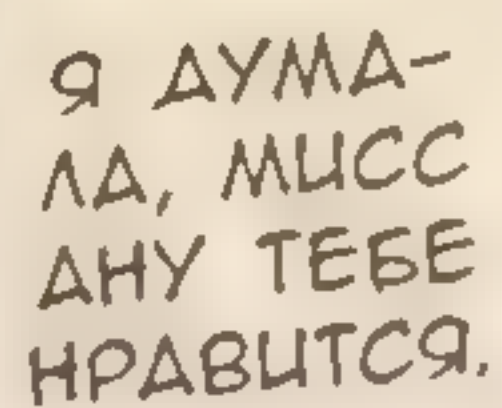 Я ДУМА-
ЛА, МИСС
АНУ ТЕБЕ
НРАВИТСЯ.